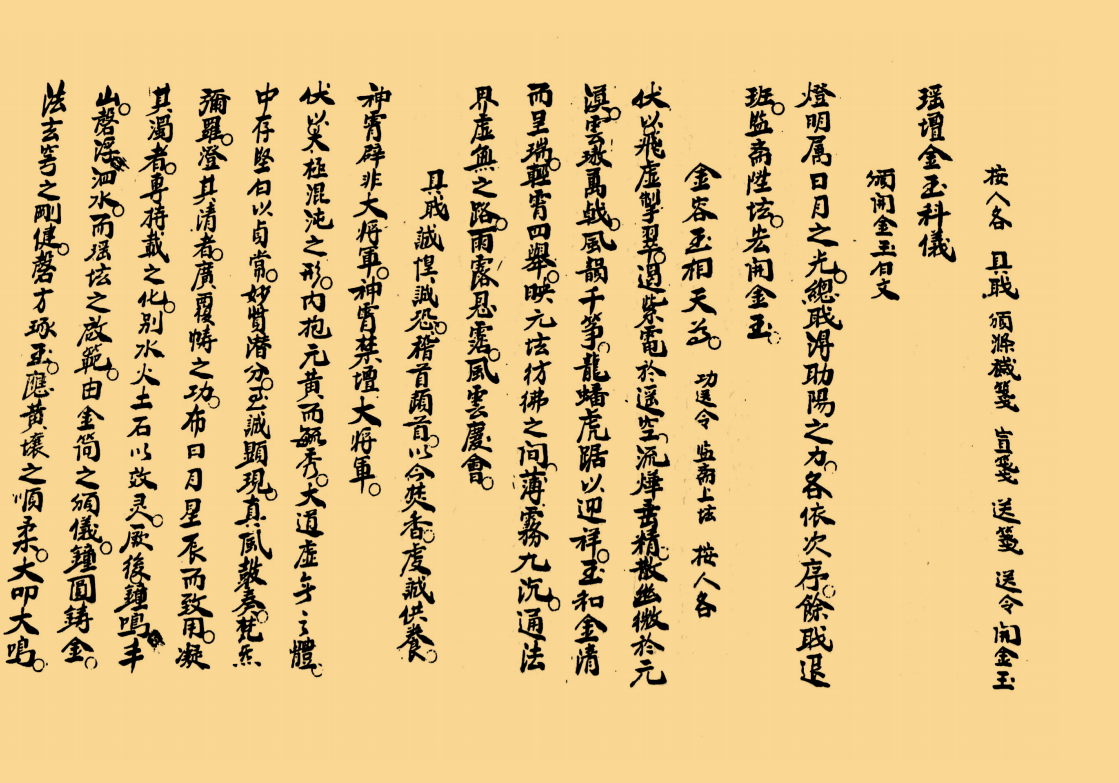 按人各 具職 須滌穢箋 宣箋 送箋 送令 開金玉
瑶壇金玉科儀
頒開金玉白文
燈明属日月之光。總戢淂助陽之力。各依次序。餘戢退
班。監斋陞坛。宏開金玉。
金容玉相天尊。 功送令 监斋上坛 按人各
伏以飛虚掣翠。遏紫電於遥空。流燁垂精。散幽微於元
漠。雲璈萬戞。風韻千筝。龍蟠虎踞以迎祥。玉和金清
而呈瑞。輕霄四舉。映元坛彷彿之间。薄霧九沉。通法
界虚無之路。雨露恩霑。風雲慶會。
具戢誠惶誠恐。稽首頓首。以今焚香。虔誠供養。
神霄辟非大将軍。神霄禁壇大将軍。
伏以太極混沌之形。内抱元黄而毓秀。大道虚無之體。
中存堅白以貞常。妙質潜分。玉誠顯現。真風鼓奏。梵炁
彌羅。澄其清者。廣覆幬之功。布日月星辰而致用。凝
其濁者。專持载之化。别水火土石以效灵。厥後鐘鳴丰
山。磬浮泗水。而瑶坛之啟範。由金简之頒儀。鐘圓鋳金。
法玄穹之剛健。磬方琢玉。應黄壤之順柔。大叩大鳴。